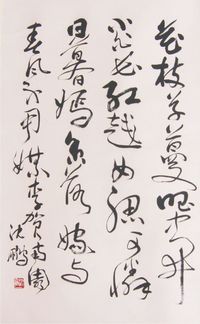 花枝草蔓眼中开
小白长红越女腮可怜
日暮嫣香落嫁与
春风不用媒李贺南园
沈鹏